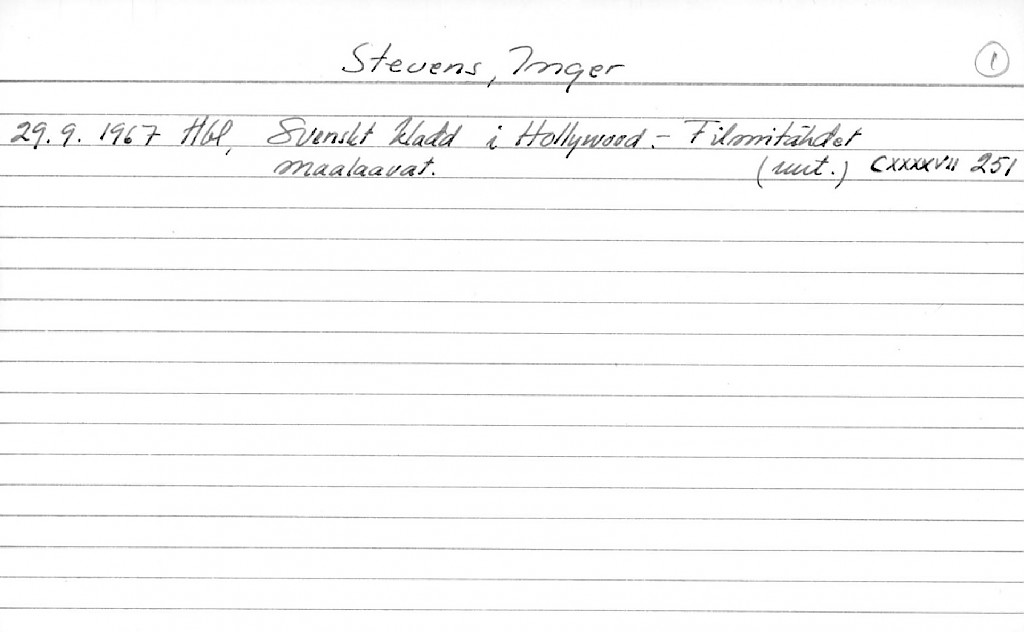 Stevens, Inger
1
29.9. 1967 Hbl, Svenskt kladd i Hollywood. - Filmitähdet
maalaavat. (uut.) CXXXXVII 251